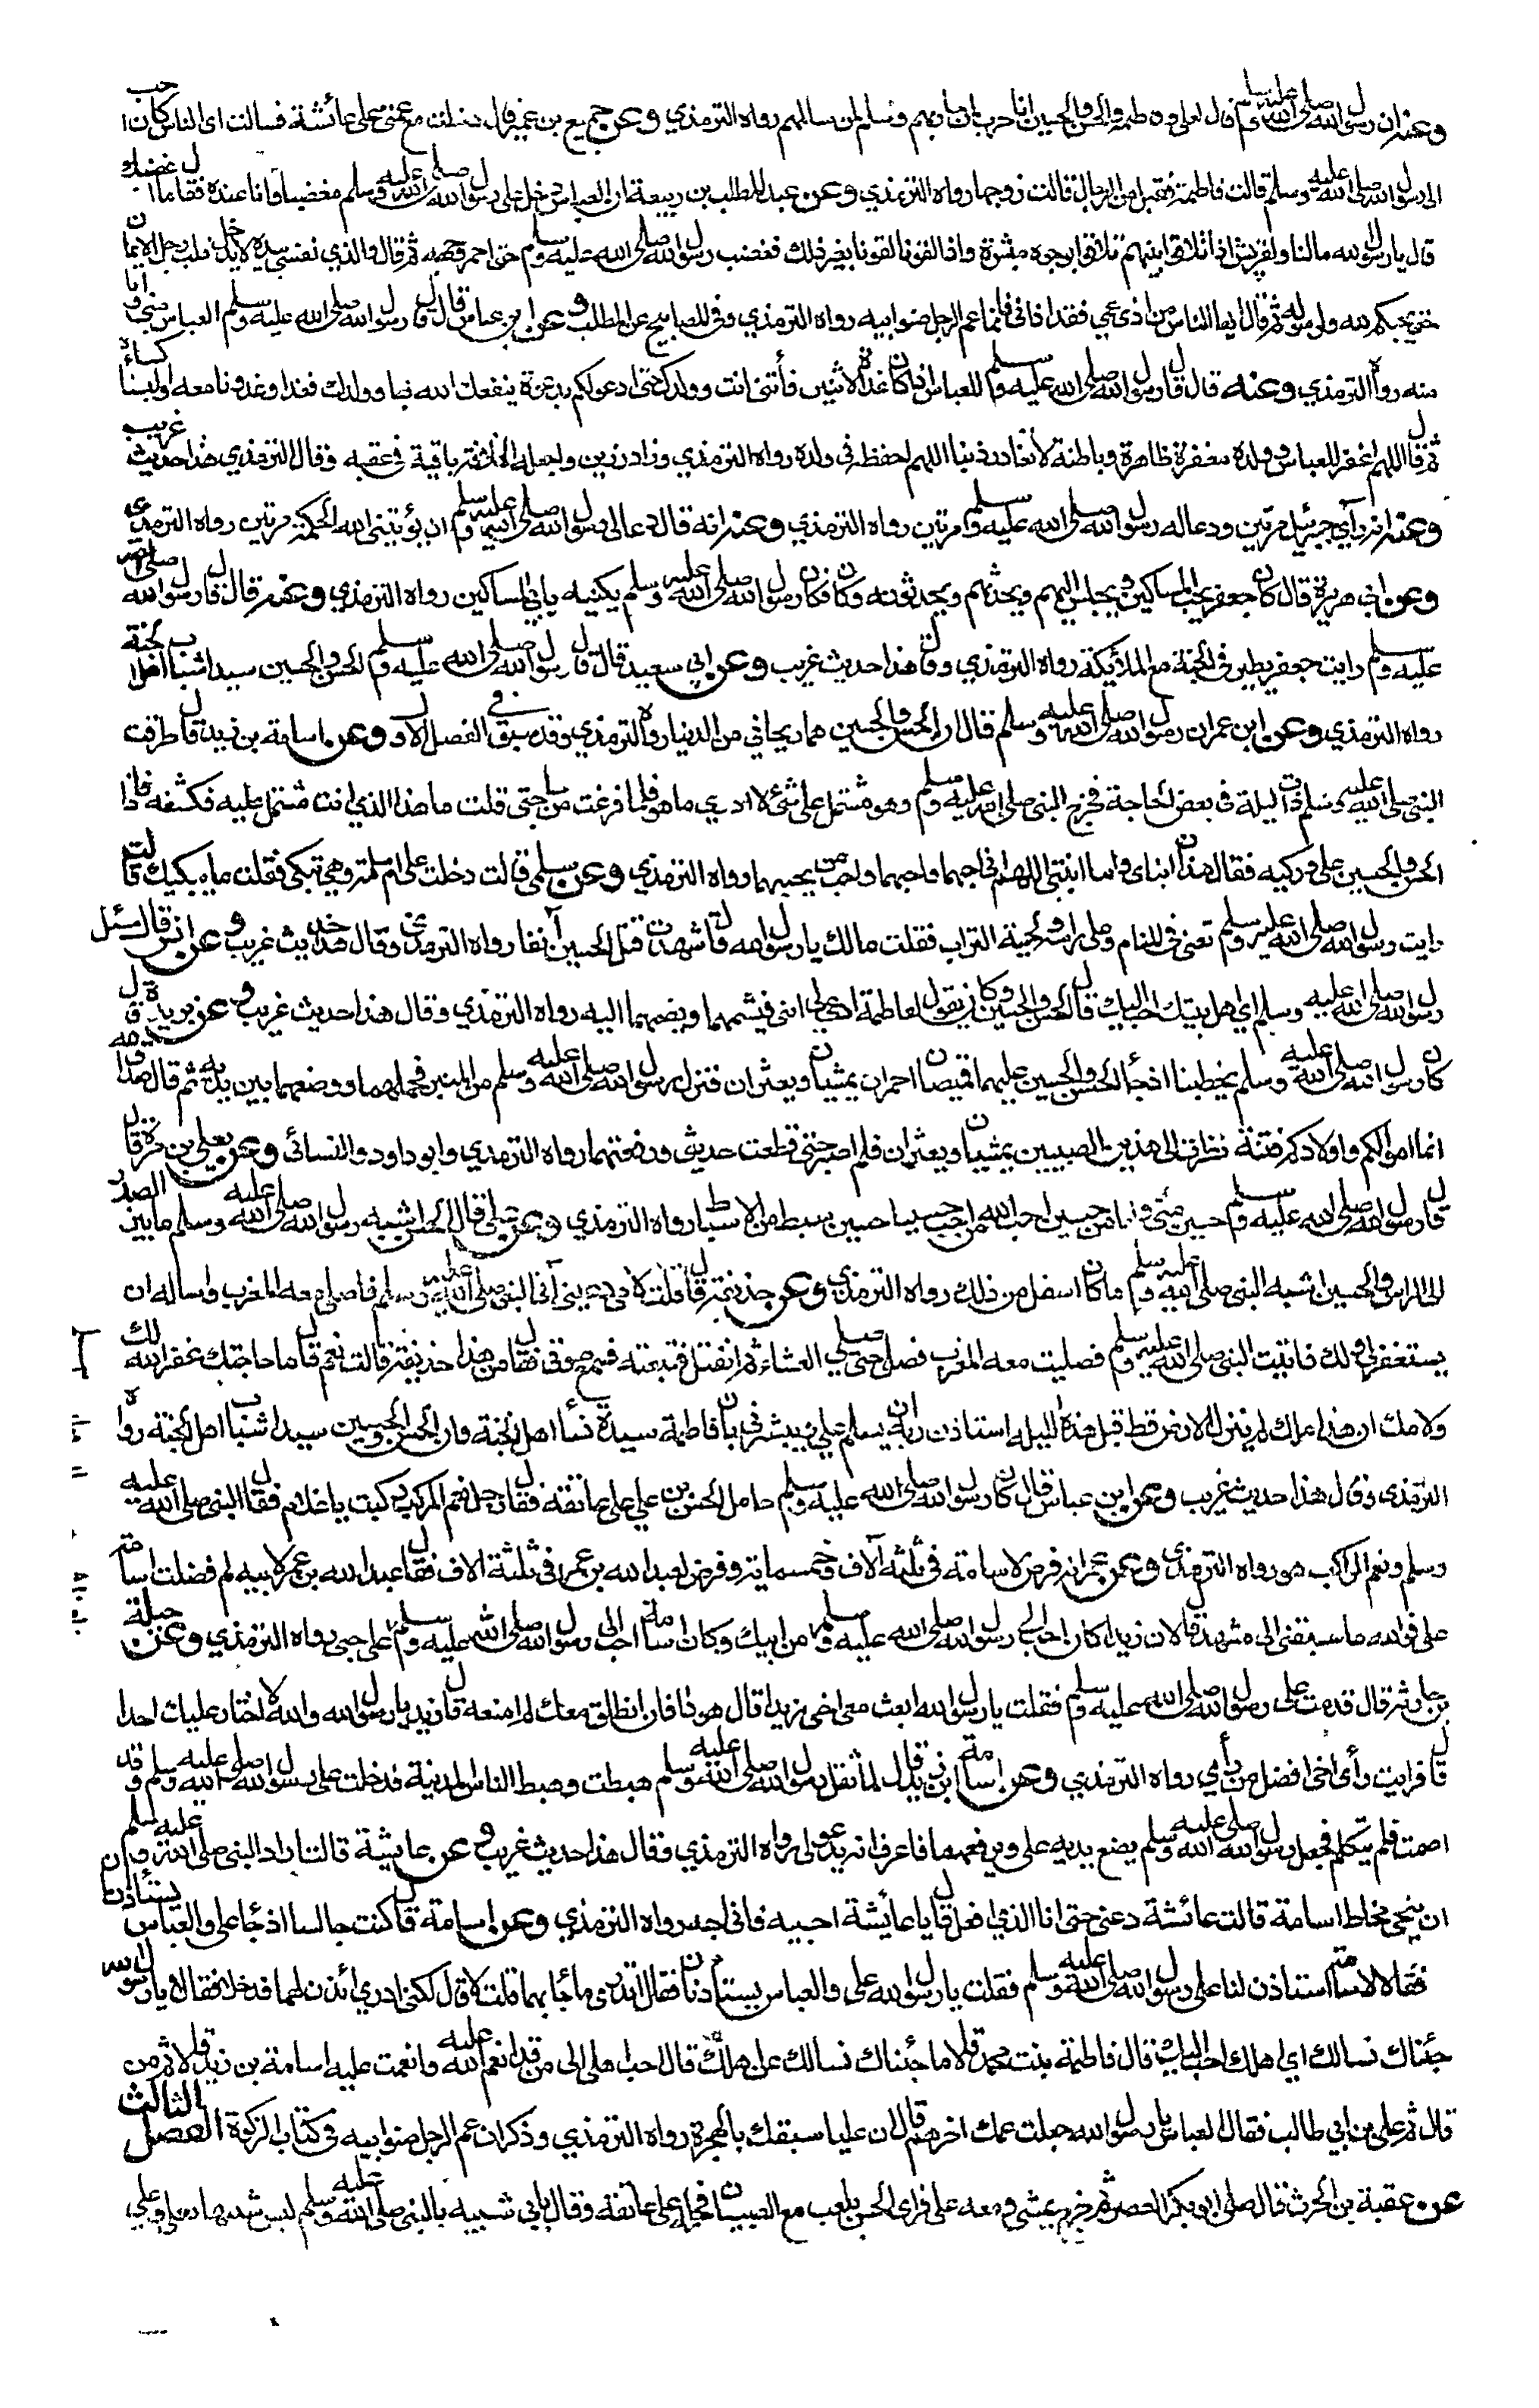 وعنه ان رسول الله صلى الله عليه وسلم قال لعلي وفاطمة والحسن والحسين انا حرب لمن حاربهم وسلم لمن سالمهم رواه الترمذي وعن جميع بن عمير قال دخلت مع عمتي على عائشة فسالت اي الناس كان احب
الى رسول الله صلى الله عليه وسلم قالت فاطمة فقيل من الرجال قالت زوجها رواه الترمذي وعن عبد المطلب بن ربيعة ان العباس دخل على رسول الله صلى الله عليه وسلم مغضبا وانا عنده فقال ما اغضبك
قال يا رسول الله مالنا ولقريش اذا تلاقوا بينهم تلاقوا بوجوه مبشرة واذا لقونا لقونا بغير ذلك فغضب رسول الله صلى الله عليه وسلم حتى احمر وجهه ثم قال والذي نفسي بيده لا يدخل قلب رجل الايمان
حتى يحبكم لله ولرسوله ثم قال ايها الناس من اذى عمي فقد اذاني فانما عم الرجل صنو ابيه رواه الترمذي وفي المصابيح عن المطلب وعن ابن عباس قال قال رسول الله صلى الله عليه وسلم العباس مني وانا
منه رواه الترمذي وعنه قال قال رسول الله صلى الله عليه وسلم للعباس اذا كان غداة الاثنين فأتني انت وولدك حتى ادعو لكم بدعوة ينفعك الله بها وولدك فغدا وغدونا معه والبسنا كساءه
ثم قال اللهم اغفر للعباس وولده مغفرة ظاهرة وباطنة لا تغادر ذنبا اللهم احفظه في ولده رواه الترمذي وزاد رزين واجعل الخلافة باقية في عقبه وقال الترمذي هذا حديث غريب
وعنه انه رأى جبرئيل مرتين ودعا له رسول الله صلى الله عليه وسلم مرتين رواه الترمذي وعنه انه قال دعا لي رسول الله صلى الله عليه وسلم ان يؤتيني الله الحكمة مرتين رواه الترمذي
وعن ابي هريرة قال كان جعفر يحب المساكين ويجلس اليهم ويحدثهم ويحدثونه وكان رسول الله صلى الله عليه وسلم يكنيه بابي المساكين رواه الترمذي وعنه قال قال رسول الله صلى الله
عليه وسلم رايت جعفر يطير في الجنة مع الملائكة رواه الترمذي وقال هذا حديث غريب وعن ابي سعيد قال قال رسول الله صلى الله عليه وسلم الحسن والحسين سيدا شباب اهل الجنة
رواه الترمذي وعن ابن عمر ان رسول الله صلى الله عليه وسلم قال ان الحسن والحسين هما ريحاني من الدنيا رواه الترمذي وقد سبق في الفصل الاول وعن اسامة بن زيد قال طرقت
النبي صلى الله عليه وسلم ذات ليلة في بعض الحاجة فخرج النبي صلى الله عليه وسلم وهو مشتمل على شئ لا ادري ما هو فلما فرغت من حاجتي قلت ما هذا الذي انت مشتمل عليه فكشفه فاذا
الحسن والحسين على وركيه فقال هذان ابناي وابنا ابنتي اللهم اني احبهما فاحبهما واحب من يحبهما رواه الترمذي وعن سلمى قالت دخلت على ام سلمة وهي تبكي فقلت ما يبكيك قالت
رايت رسول الله صلى الله عليه وسلم تعني في المنام وعلى راسه ولحيته التراب فقلت مالك يا رسول الله قال شهدت قتل الحسين آنفا رواه الترمذي وقال هذا حديث غريب وعن انس قال سئل
رسول الله صلى الله عليه وسلم اي اهل بيتك احب اليك قال الحسن والحسين وكان يقول لفاطمة ادعي لي ابني فيشمهما ويضمهما اليه رواه الترمذي وقال هذا حديث غريب وعن بريدة قال
كان رسول الله صلى الله عليه وسلم يخطبنا اذ جأ الحسن والحسين عليهما قميصان احمران يمشيان ويعثران فنزل رسول الله صلى الله عليه وسلم من المنبر فحملهما ووضعهما بين يديه ثم قال صدق الله
انما اموالكم واولادكم فتنة نظرت الى هذين الصبيين يمشيان ويعثران فلم اصبر حتى قطعت حديثي ورفعتهما رواه الترمذي وابو داود والنسائي وعن يعلى بن مرة قال
قال رسول الله صلى الله عليه وسلم حسين مني وانا من حسين احب الله من احب حسينا حسين سبط من الاسباط رواه الترمذي وعن علي قال الحسن اشبه رسول الله صلى الله عليه وسلم ما بين الصدر
الى الراس والحسين اشبه النبي صلى الله عليه وسلم ما كان اسفل من ذلك رواه الترمذي وعن حذيفة قال قلت لامي دعيني آتي النبي صلى الله عليه وسلم فاصلي معه المغرب واساله ان
يستغفر لي ولك فاتيت النبي صلى الله عليه وسلم فصليت معه المغرب فصلى حتى صلى العشاء ثم انفتل فتبعته فسمع صوتي فقال من هذا حذيفة قلت نعم قال ما حاجتك غفر الله لك
ولامك ان هذا ملك لم ينزل الارض قط قبل هذه الليلة استاذن ربه ان يسلم علي ويبشرني بان فاطمة سيدة نسأ اهل الجنة وان الحسن والحسين سيدا شباب اهل الجنة رواه
الترمذي وقال هذا حديث غريب وعن ابن عباس قال كان رسول الله صلى الله عليه وسلم حامل الحسن بن علي على عاتقه فقال رجل نعم المركب ركبت يا غلام فقال النبي صلى الله عليه
وسلم ونعم الراكب هو رواه الترمذي وعن عمر انه فرض لاسامة في ثلثة آلاف وخمسماية وفرض لعبد الله بن عمر في ثلثة الاف فقال عبد الله بن عمر لابيه لم فضلت اسامة
علي فوالله ما سبقني الى مشهد قال لان زيدا كان احب الى رسول الله صلى الله عليه وسلم من ابيك وكان اسامة احب الى رسول الله صلى الله عليه وسلم على حبي رواه الترمذي وعن جبلة
بن حارثة قال قدمت على رسول الله صلى الله عليه وسلم فقلت يا رسول الله ابعث معي اخي زيدا قال هو ذا فان انطلق معك لم امنعه قال زيد يا رسول الله والله لا اختار عليك احدا
قال فرايت رأى اخي افضل من رأيي رواه الترمذي وعن اسامة ابن زيد قال لما ثقل رسول الله صلى الله عليه وسلم هبطت وهبط الناس المدينة فدخلت على رسول الله صلى الله عليه وسلم وقد
اصمت فلم يتكلم فجعل رسول الله صلى الله عليه وسلم يضع يديه علي ويرفعهما فاعرف انه يدعو لي رواه الترمذي وقال هذا حديث غريب وعن عايشة قالت اراد النبي صلى الله عليه وسلم
ان ينحي مخاط اسامة قالت عائشة دعني حتى انا الذي افعل قال يا عايشة احبيه فاني احبه رواه الترمذي وعن اسامة قال كنت جالسا اذ جأ علي والعباس يستأذنان
فقالا لاسامة استاذن لنا على رسول الله صلى الله عليه وسلم فقلت يا رسول الله علي والعباس يستأذنان فقال اتدري ما جأ بهما قلت لا قال لكني ادري ائذن لهما فدخلا فقالا يا رسول الله
جئناك نسالك اي اهلك احب اليك قال فاطمة بنت محمد قالا ما جئناك نسالك عن اهلك قال احب اهلي الي من قد انعم الله عليه وانعمت عليه اسامة بن زيد قالا ثم من
قال ثم علي بن ابي طالب فقال العباس يا رسول الله جعلت عمك اخرهم قال ان عليا سبقك بالهجرة رواه الترمذي وذكر ان عم الرجل صنو ابيه في كتاب الزكوة الفصل الثالث
عن عقبة بن الحرث قال صلى ابو بكر العصر ثم خرج يمشي ومعه علي فراى الحسن يلعب مع الصبيان فحمله على عاتقه وقال بابي شبيه بالنبي صلى الله عليه وسلم ليس شبيها بعلي وعلي